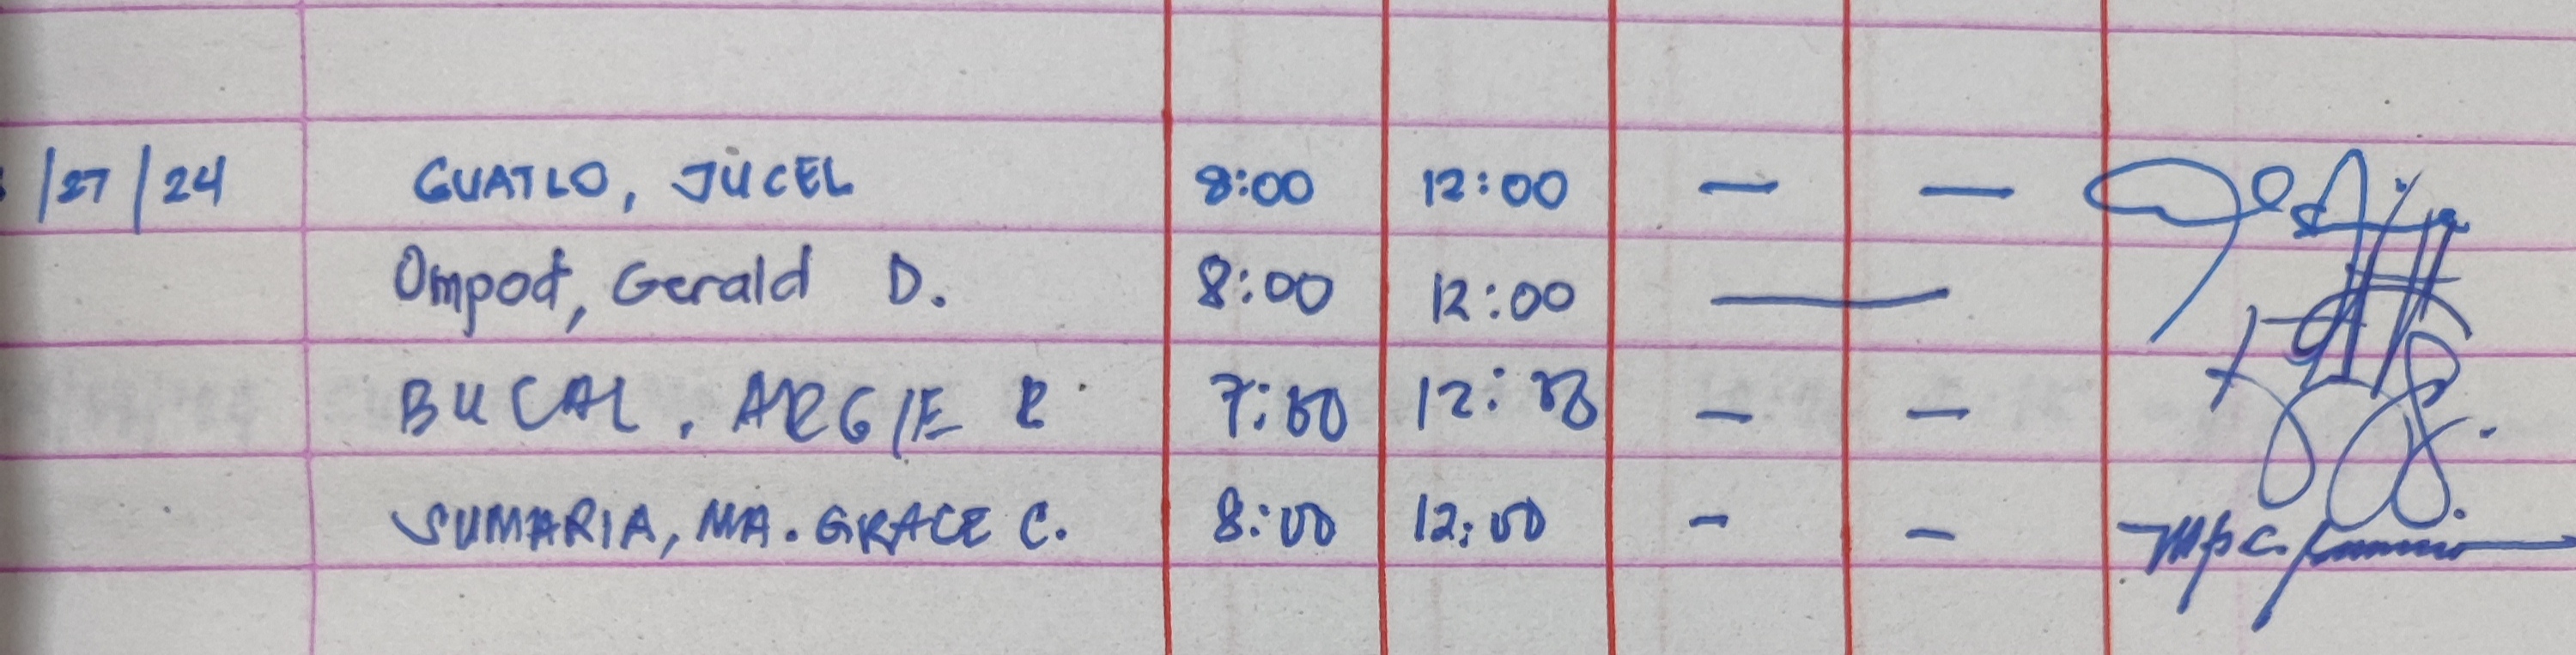 /27/24 GUATLO, JUCEL 8:00 12:00 — —
Ompod, Gerald D. 8:00 12:00 —
BUCAL, ARGIE R 7:00 12: — —
SUMARIA, MA. GRACE C. 8:00 12:00 - -